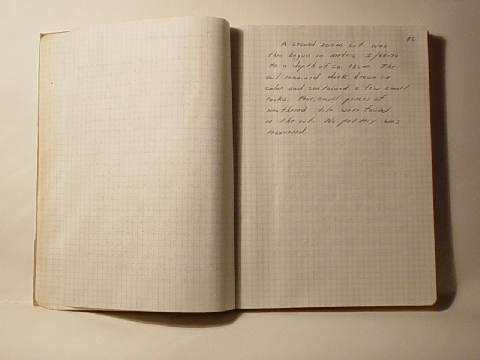 85
A second 20cm cut was
then begun in metric I/68:70
to a depth of ca. 20cm. The
soil remained dark brown in
color and contained a few small
rocks. Four small pieces of
weathered tile were found
in the cut. No pottery was
recovered.